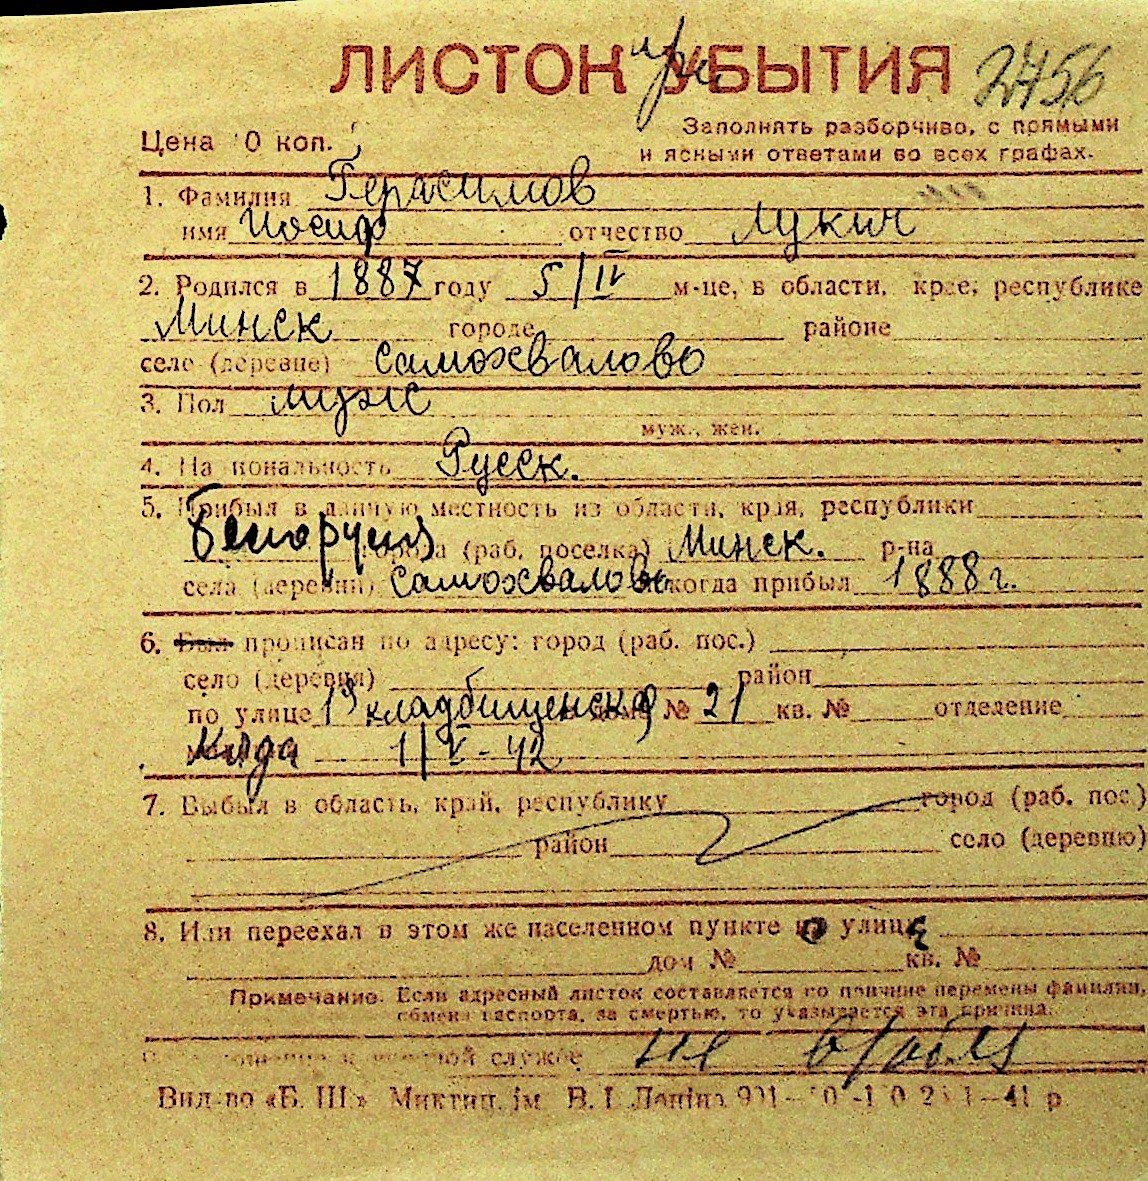 ЛИСТОК при УБЫТИЯ 2456
Цена 10 коп.
Заполнять разборчиво, с прямыми
и ясными ответами во всех графах.
1. Фамилия Герасимов
имя Иосиф отчество Лукич
2. Родился в 1887 году 5/IV м-це, в области, крае, республике
Минск городе районе
село (деревне) Самохвалово
3. Пол муж
муж., жен.
4. Национальность Русск.
5. Прибыл в данную местность из области, края, республики
Белорусия города (раб. поселка) Минск. р-на
села (деревни) Самохвалово когда прибыл 1888 г.
6. Был прописан по адресу: город (раб. пос.)
село (деревня) район
по улице 1я кладбищенская дом № 21 кв. № отделение
Когда 1/V-42
7. Выбыл в область, край, республику город (раб. пос.)
район село (деревню)
8. Или переехал в этом же населенном пункте по улице
дом № кв. №
Примечание. Если адресный листок составляется по причине перемены фамилии,
обмена паспорта, за смертью, то указывается эта причина.
Отношение к военной службе не
Вид-во «Б. Ш.» Миктип. ім. В. І. Леніна